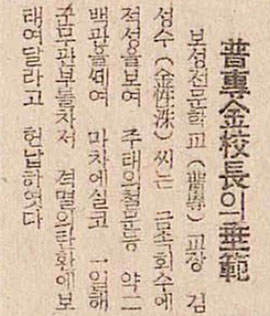 普專金校長의垂範
보성전문학교(普專)교장 김
성수(金性洙)씨는 금속회수에
적성을보여 주태의철문등 약二
백관을떼여 마차에실고 一일해
군무관부를차저 격멸의탄환에보
태여달라고 헌납하엿다